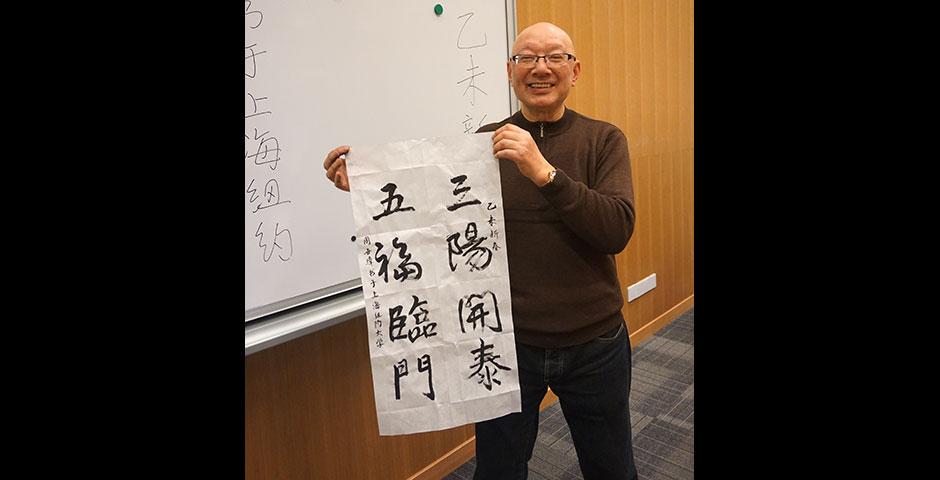 乙未新
于上海纽约
乙未新春
三陽開泰
五福臨門
周书于上海纽约大学